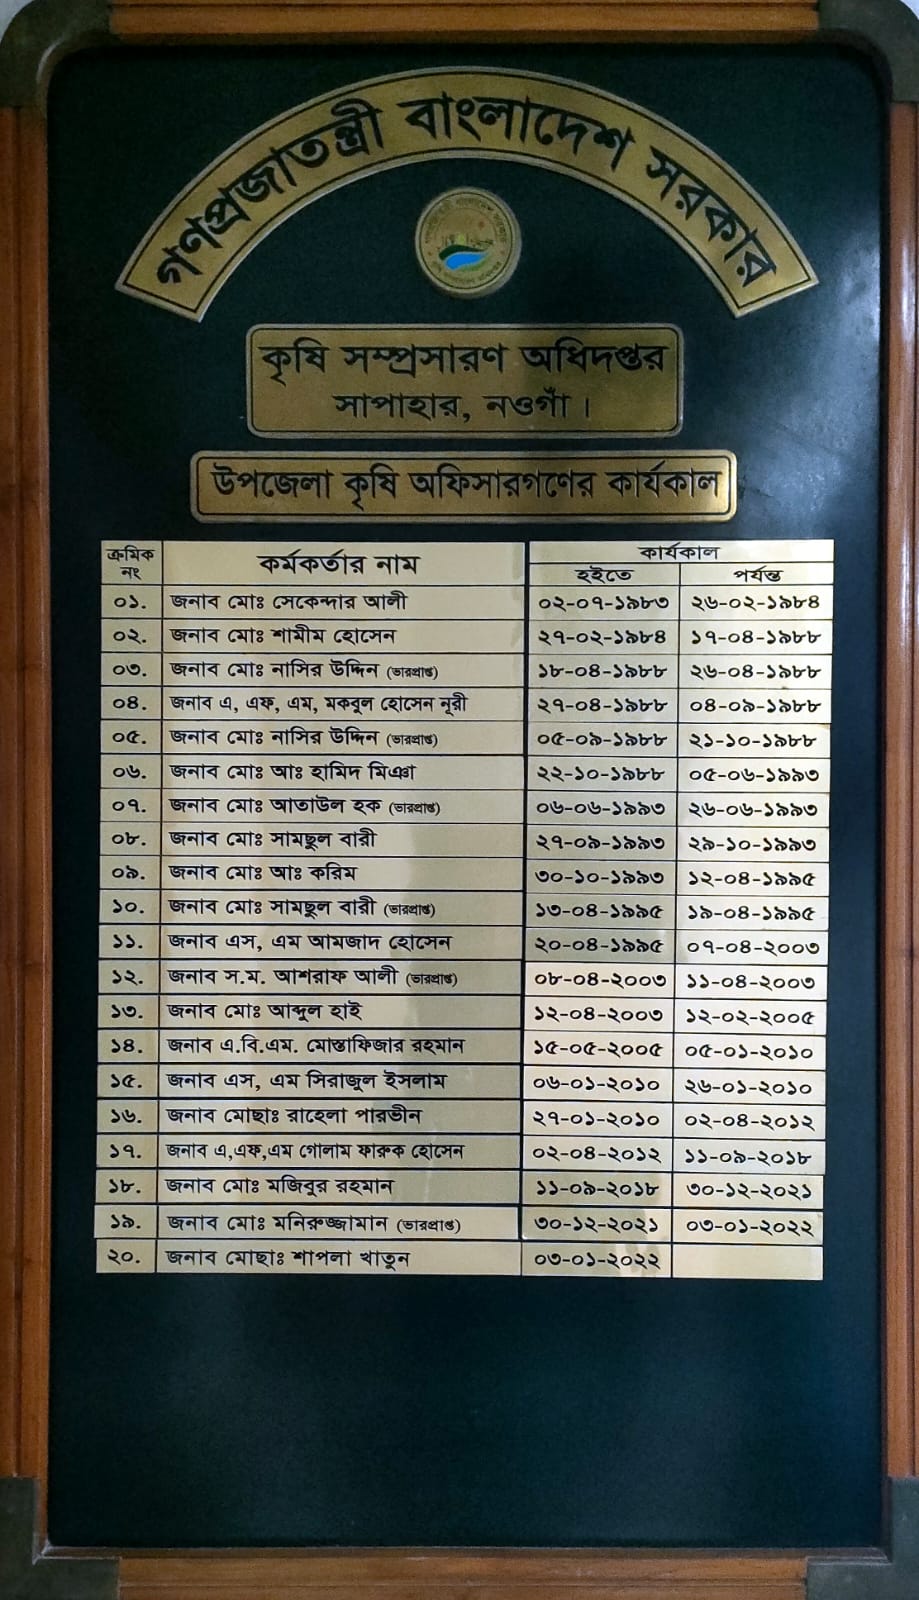 গণপ্রজাতন্ত্রী বাংলাদেশ সরকার
কৃষি সম্প্রসারণ অধিদপ্তর
সাপাহার, নওগাঁ।
উপজেলা কৃষি অফিসারগণের কার্যকাল
ক্রমিক নং কর্মকর্তার নাম কার্যকাল
হইতে পর্যন্ত
০১. জনাব মোঃ সেকেন্দার আলী ০২-০৭-১৯৮৩ ২৬-০২-১৯৮৪
০২. জনাব মোঃ শামীম হোসেন ২৭-০২-১৯৮৪ ১৭-০৪-১৯৮৮
০৩. জনাব মোঃ নাসির উদ্দিন (ভারপ্রাপ্ত) ১৮-০৪-১৯৮৮ ২৬-০৪-১৯৮৮
০৪. জনাব এ, এফ, এম, মকবুল হোসেন নূরী ২৭-০৪-১৯৮৮ ০৪-০৯-১৯৮৮
০৫. জনাব মোঃ নাসির উদ্দিন (ভারপ্রাপ্ত) ০৫-০৯-১৯৮৮ ২১-১০-১৯৮৮
০৬. জনাব মোঃ আঃ হামিদ মিঞা ২২-১০-১৯৮৮ ০৫-০৬-১৯৯৩
০৭. জনাব মোঃ আতাউল হক (ভারপ্রাপ্ত) ০৬-০৬-১৯৯৩ ২৬-০৬-১৯৯৩
০৮. জনাব মোঃ সামছুল বারী ২৭-০৯-১৯৯৩ ২৯-১০-১৯৯৩
০৯. জনাব মোঃ আঃ করিম ৩০-১০-১৯৯৩ ১২-০৪-১৯৯৫
১০. জনাব মোঃ সামছুল বারী (ভারপ্রাপ্ত) ১৩-০৪-১৯৯৫ ১৯-০৪-১৯৯৫
১১. জনাব এস, এম আমজাদ হোসেন ২০-০৪-১৯৯৫ ০৭-০৪-২০০৩
১২. জনাব স.ম. আশরাফ আলী (ভারপ্রাপ্ত) ০৮-০৪-২০০৩ ১১-০৪-২০০৩
১৩. জনাব মোঃ আব্দুল হাই ১২-০৪-২০০৩ ১২-০২-২০০৫
১৪. জনাব এ.বি.এম. মোস্তাফিজার রহমান ১৫-০৫-২০০৫ ০৫-০১-২০১০
১৫. জনাব এস, এম সিরাজুল ইসলাম ০৬-০১-২০১০ ২৬-০১-২০১০
১৬. জনাব মোছাঃ রাহেলা পারভীন ২৭-০১-২০১০ ০২-০৪-২০১২
১৭. জনাব এ,এফ,এম গোলাম ফারুক হোসেন ০২-০৪-২০১২ ১১-০৯-২০১৮
১৮. জনাব মোঃ মজিবুর রহমান ১১-০৯-২০১৮ ৩০-১২-২০২১
১৯. জনাব মোঃ মনিরুজ্জামান (ভারপ্রাপ্ত) ৩০-১২-২০২১ ০৩-০১-২০২২
২০. জনাব মোছাঃ শাপলা খাতুন ০৩-০১-২০২২